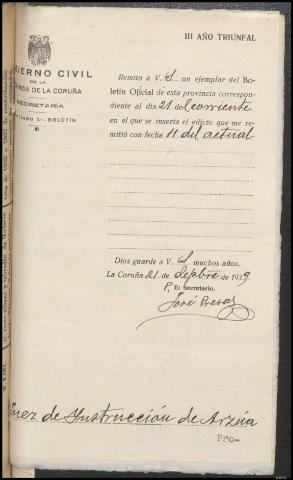 III AÑO TRIUNFAL
BIERNO CIVIL
DE LA
INCIA DE LA CORUÑA
SECRETARÍA
BOLETÍN
Remito a V. S. un ejemplar del Bo-
letín Oficial de esta provincia correspon-
diente al día 21 del corriente
en el que se inserta el edicto que me re-
mitió con fecha 11 del actual
Dios guarde a V. S. muchos años.
La Coruña 21 de Sepbre de 1939
P. El Secretario,
José
uez de Instrucción de Arzúa
PRO-